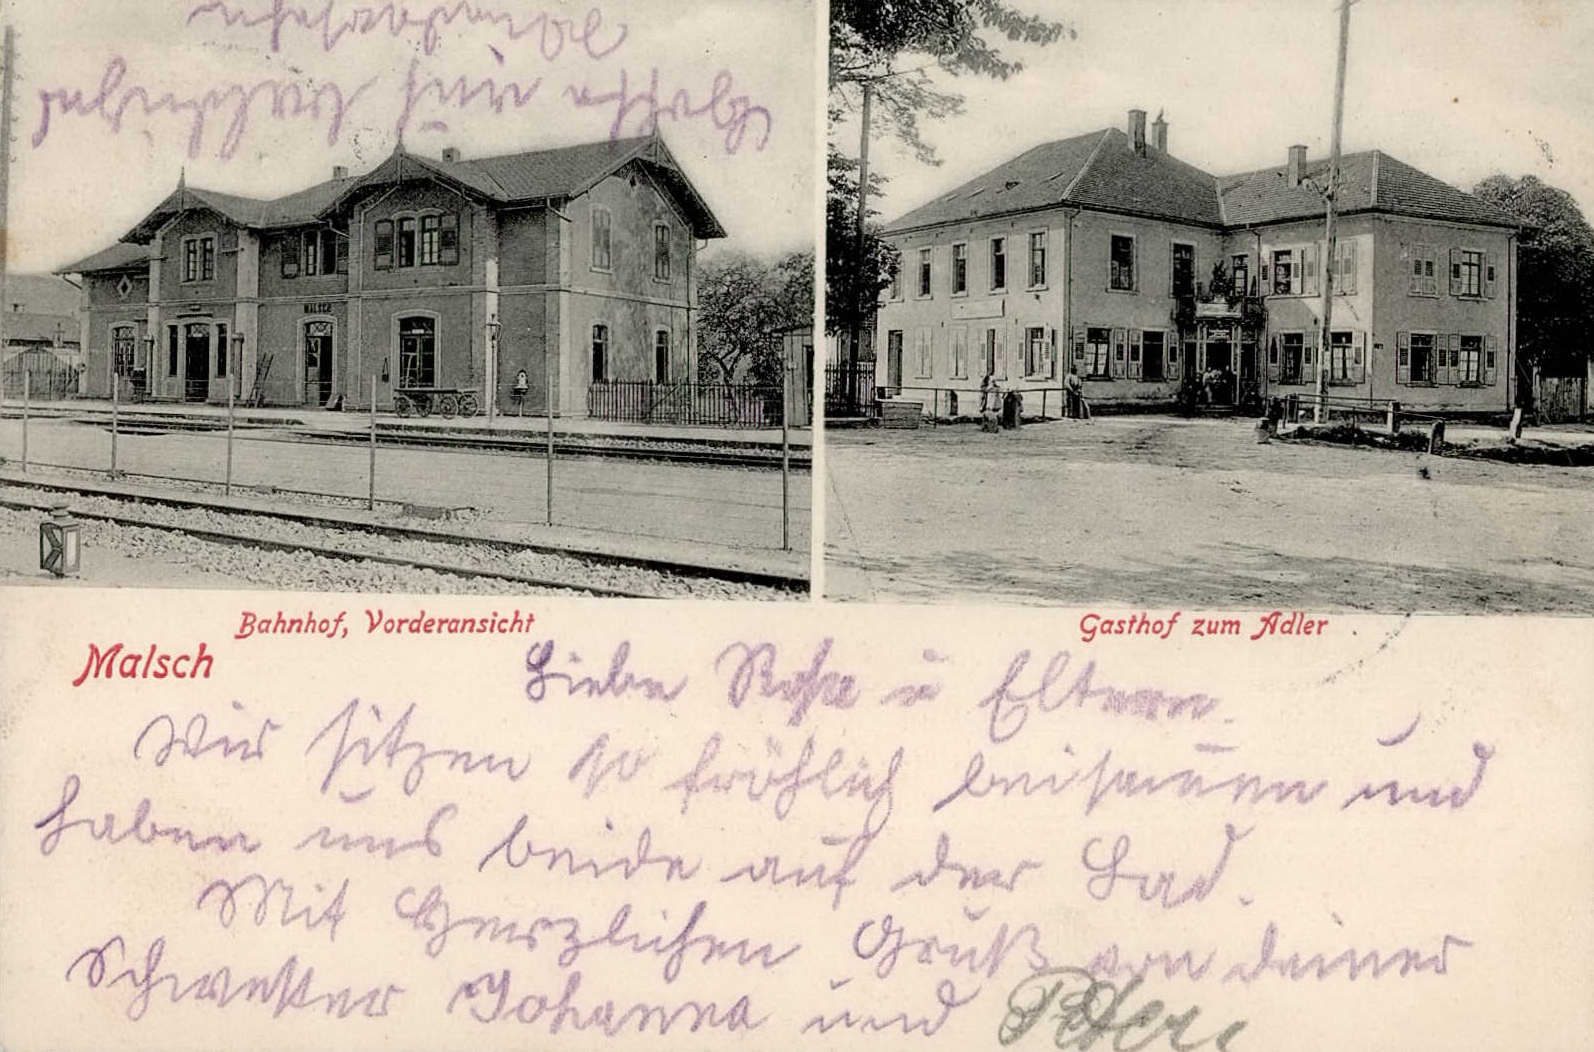 MALSCH
Bahnhof, Vorderansicht
Gasthof zum Adler
Malsch
Liebe Rosa u Eltern.
Wir sitzen so fröhlich beisamen und
haben uns beide auf der Lad.
Mit Herzlichen Gruß von deiner
Schwester Johanna und Peter